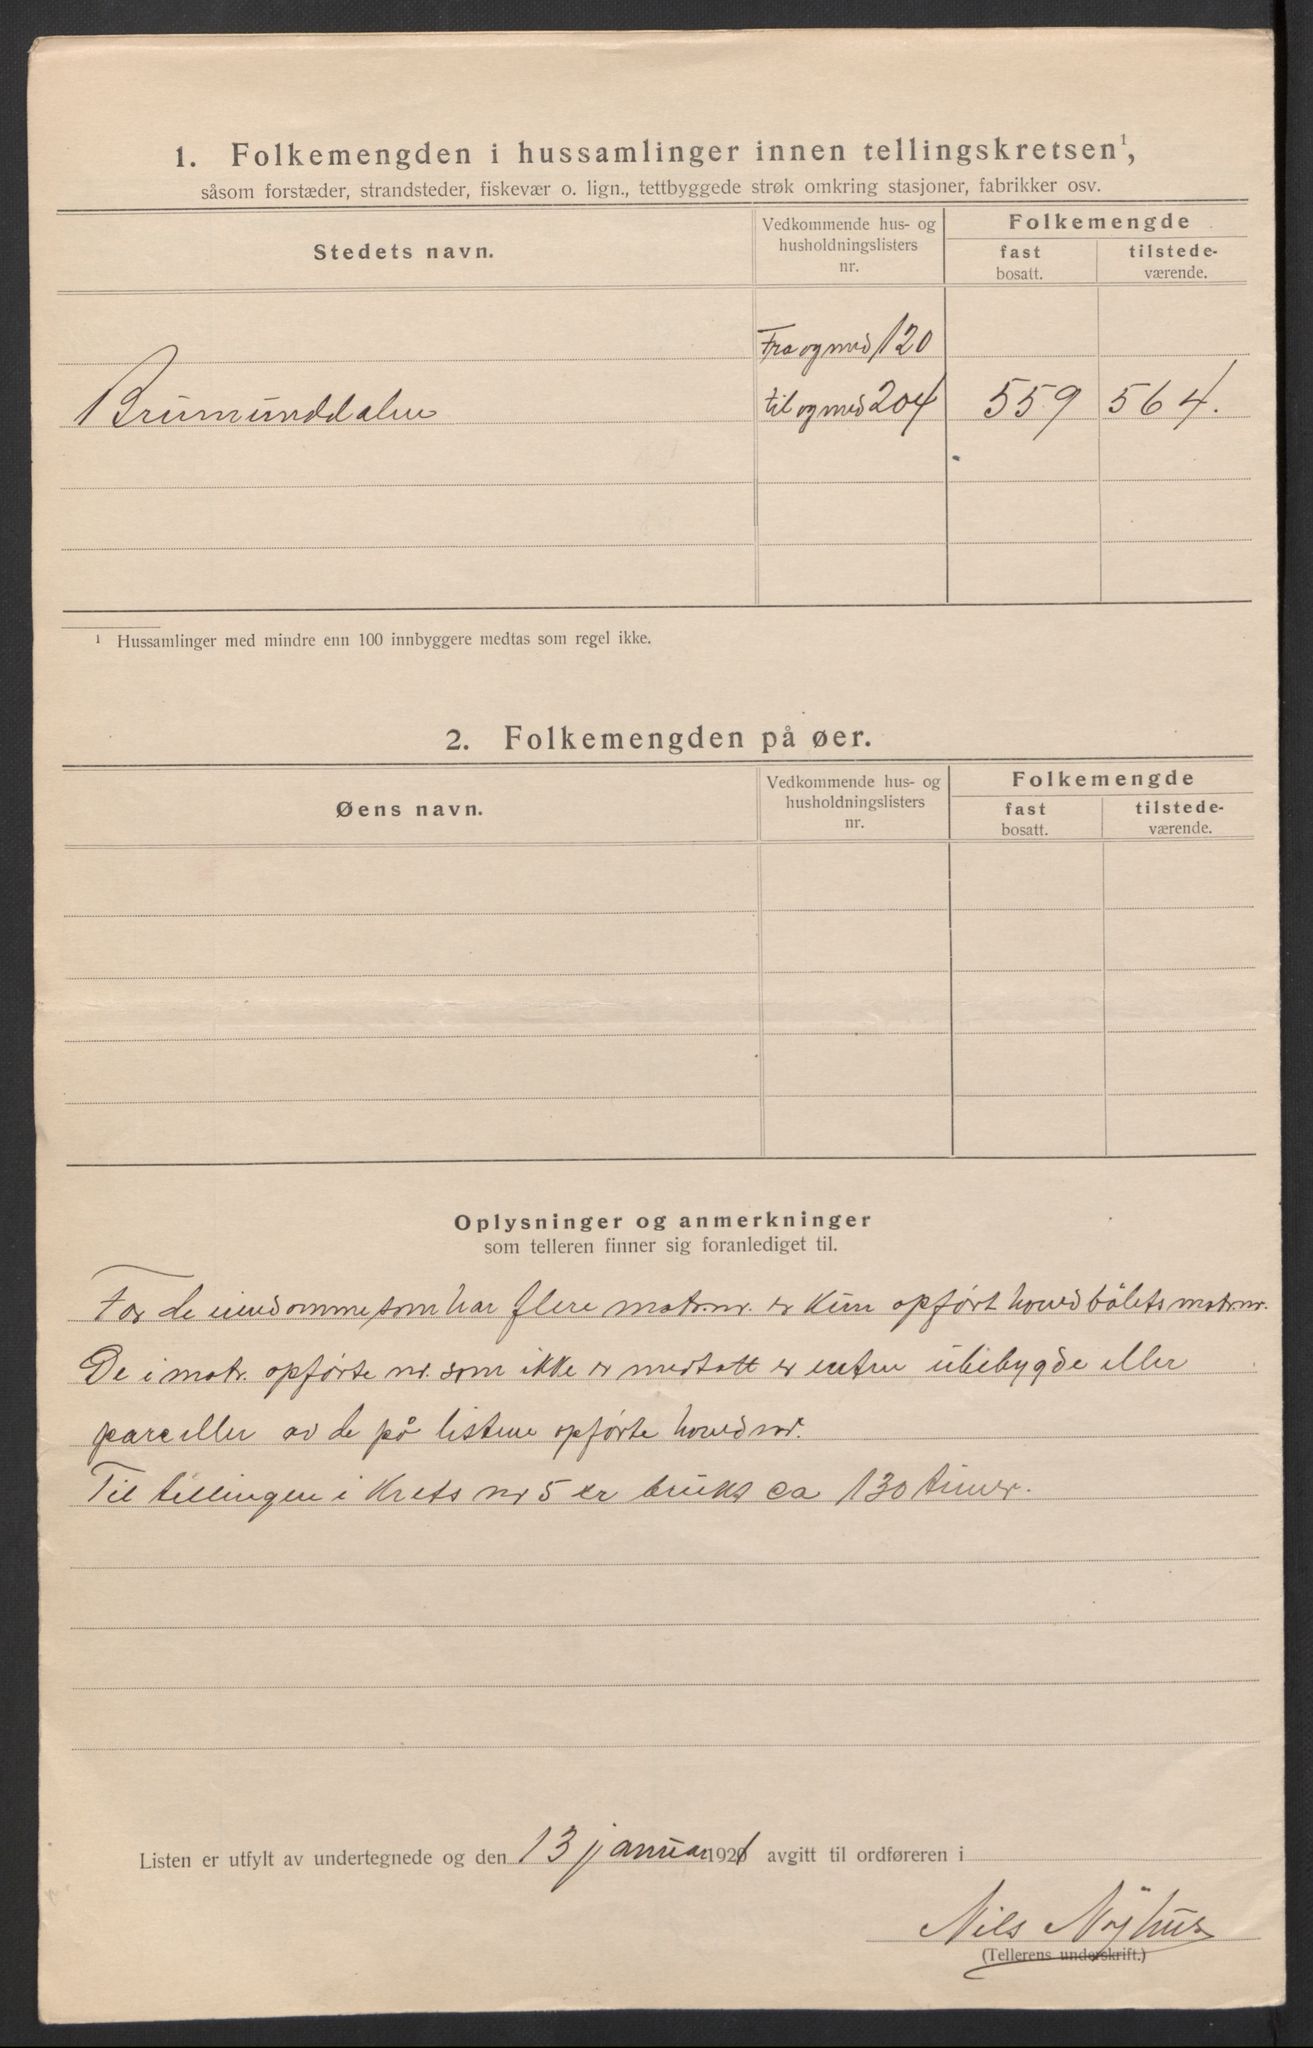 1. Folkemengden i hussamlinger innen tellingskretsen¹,
såsom forstæder, strandsteder, fiskevær o. lign., tettbyggede strøk omkring stasjoner, fabrikker osv.
Stedets navn.
Vedkommende hus- og
husholdningslisters
nr.
Folkemengde
fast
bosatt.
tilstede-
værende.
Fra og med 120
Brumunddalen til og med 204 559 564.
¹ Hussamlinger med mindre enn 100 innbyggere medtas som regel ikke.
2. Folkemengden på øer.
Øens navn.
Vedkommende hus- og
husholdningslisters
nr.
Folkemengde
fast
bosatt.
tilstede-
værende.
Oplysninger og anmerkninger
som telleren finner sig foranlediget til.
For de eiendomme som har flere matr.nr. er kun opført hovedbølets matr.nr.
De i matr. opførte nr. som ikke er medtatt er enten ubebygde eller
parceller av de på listene opførte hovednr.
Til tellingen i krets nr 5 er brukt ca 130 timer.
Listen er utfylt av undertegnede og den 13 januar 1921 avgitt til ordføreren i
Nils Nøjhus
(Tellerens underskrift.)